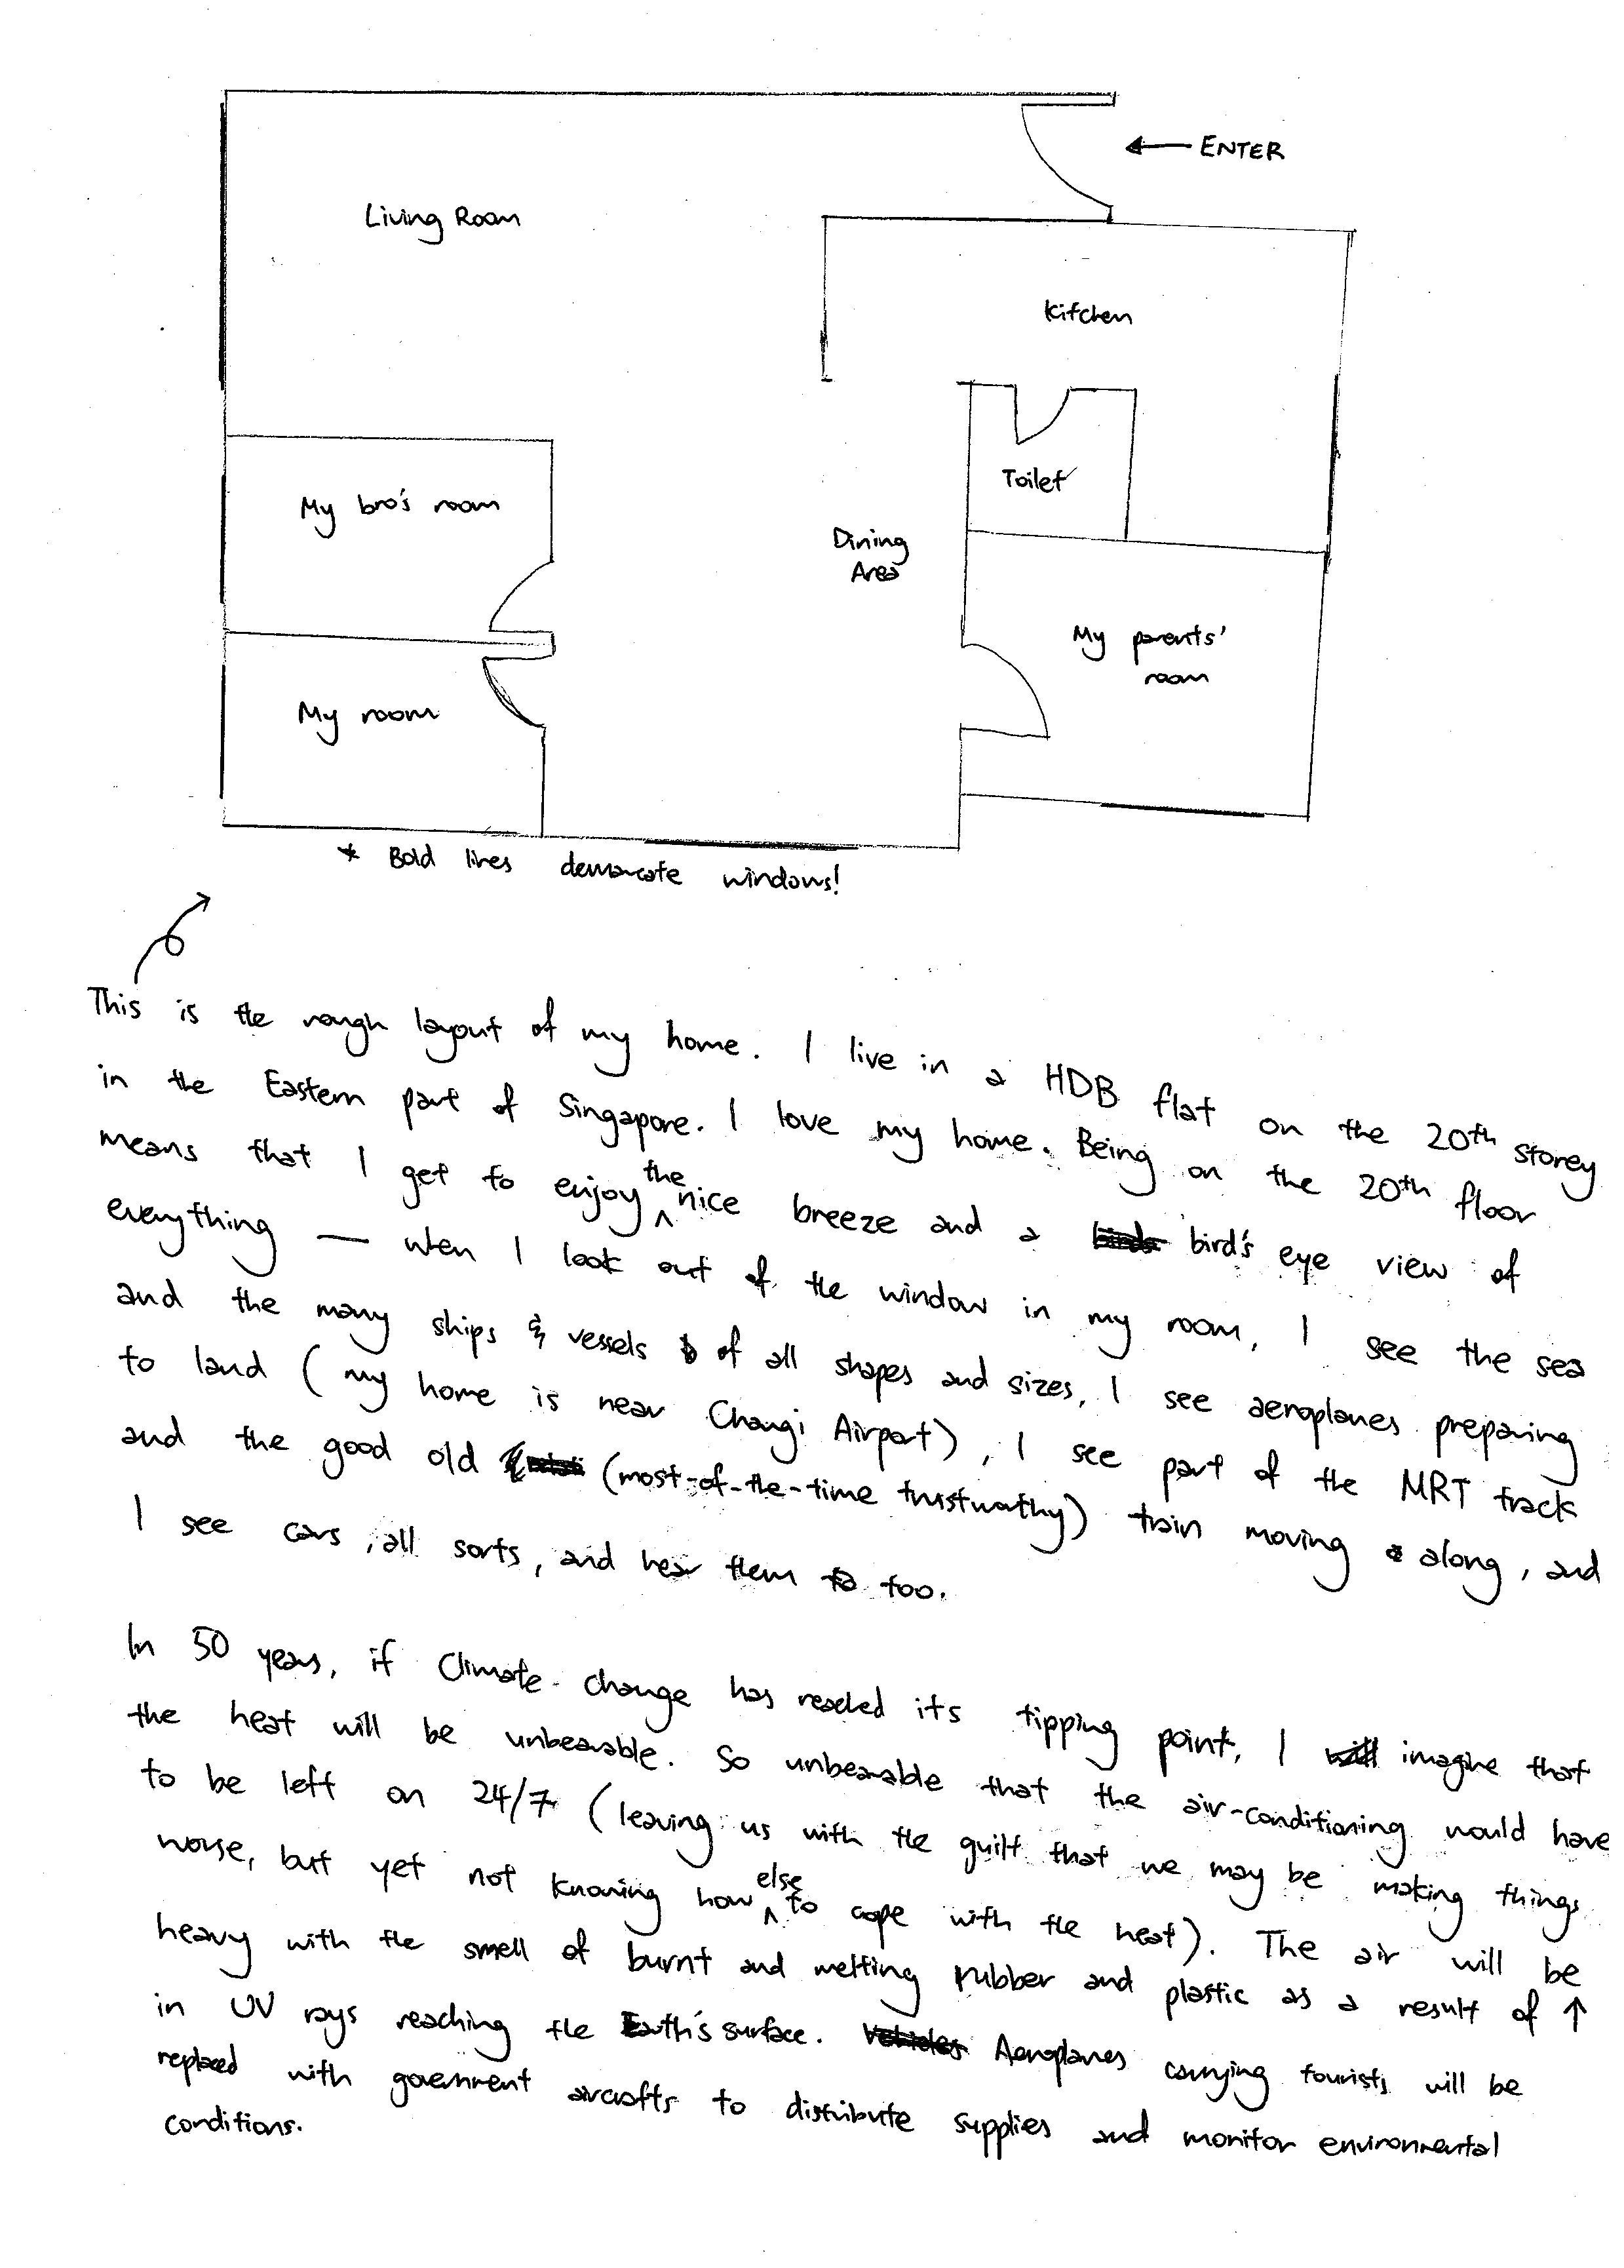 ← ENTER
Living Room
Kitchen
My bro's room
Toilet
Dining
Area
My parents'
room
My room
* Bold lines demarcate windows!
This is the rough layout of my home. I live in a HDB flat on the 20th storey
in the Eastern part of Singapore. I love my home. Being on the 20th floor
means that I get to enjoy the nice breeze and a bird's eye view of
everything — when I look out of the window in my room, I see the sea
and the many ships & vessels of all shapes and sizes, I see aeroplanes preparing
to land (my home is near Changi Airport), I see part of the MRT track
and the good old (most-of-the-time trustworthy) train moving along, and
I see cars, all sorts, and hear them too.
In 50 years, if Climate change has reached its tipping point, I imagine that
the heat will be unbearable. So unbearable that the air-conditioning would have
to be left on 24/7 (leaving us with the guilt that we may be making things
worse, but yet not knowing how else to cope with the heat). The air will be
heavy with the smell of burnt and melting rubber and plastic as a result of ↑
in UV rays reaching the Earth's surface. Aeroplanes carrying tourists will be
replaced with government aircrafts to distribute supplies and monitor environmental
conditions.